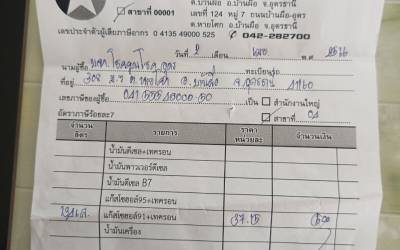 ต.บ้านผือ อ.บ้านผือ จ.อุดรธานี
☑ สาขาที่ 00001
เลขที่ 124 หมู่ 7 ถนนบ้านผือ-อุดร
ต.หายโศก อ.บ้านผือ จ.อุดรธานี
เลขประจำตัวผู้เสียภาษีอากร 0 4135 49000 525
042-282700
วันที่ 2 พ.ศ. 2566
นามผู้ซื้อ ทะเบียนรถ
ที่อยู่ 308 อ.บ้านผือ จ.อุดรธานี 41160
เลขภาษีของผู้ซื้อ เป็น สำนักงานใหญ่
อัตราภาษีร้อยละ7 ☑ สาขาที่ 01
จำนวนลิตร รายการ ราคาหน่วยละ จำนวนเงิน
น้ำมันดีเซล+เทครอน
น้ำมันพาวเวอร์ดีเซล
น้ำมันดีเซล B7
แก๊สโซฮอล์95+เทครอน
แก๊สโซฮอล์91+เทครอน 37.15 500
น้ำมันเครื่อง